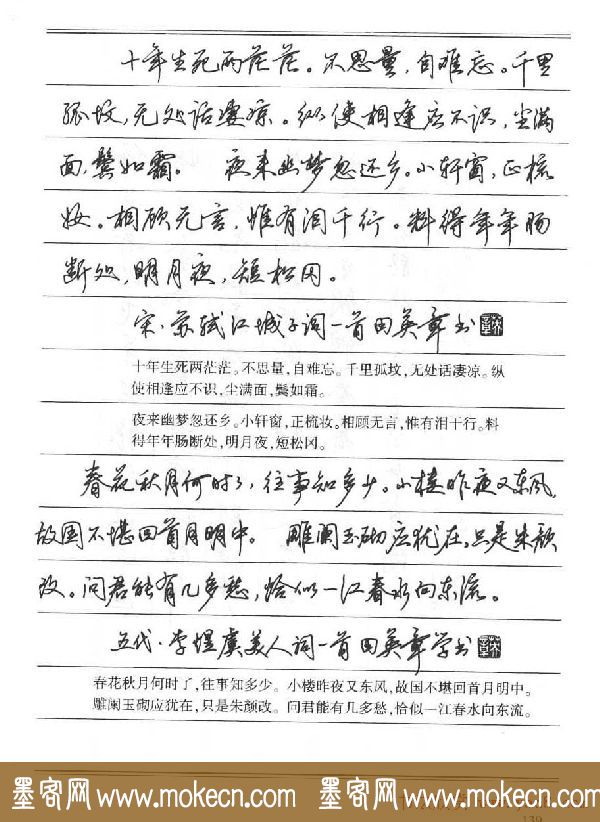 十年生死两茫茫。不思量，自难忘。千里
孤坟，无处话凄凉。纵使相逢应不识，尘满
面，鬓如霜。 夜来幽梦忽还乡。小轩窗，正梳
妆。相顾无言，惟有泪千行。料得年年肠
断处，明月夜，短松冈。
宋·苏轼江城子词一首田英章书
十年生死两茫茫。不思量，自难忘。千里孤坟，无处话凄凉。纵
使相逢应不识，尘满面，鬓如霜。
夜来幽梦忽还乡。小轩窗，正梳妆。相顾无言，惟有泪千行。料
得年年肠断处，明月夜，短松冈。
春花秋月何时了，往事知多少。小楼昨夜又东风，
故国不堪回首月明中。 雕阑玉砌应犹在，只是朱颜
改。问君能有几多愁，恰似一江春水向东流。
五代·李煜虞美人词一首田英章学书
春花秋月何时了，往事知多少。小楼昨夜又东风，故国不堪回首月明中。
雕阑玉砌应犹在，只是朱颜改。问君能有几多愁，恰似一江春水向东流。
墨客网 www.mokecn.com 墨客网 www.mokecn.com
139